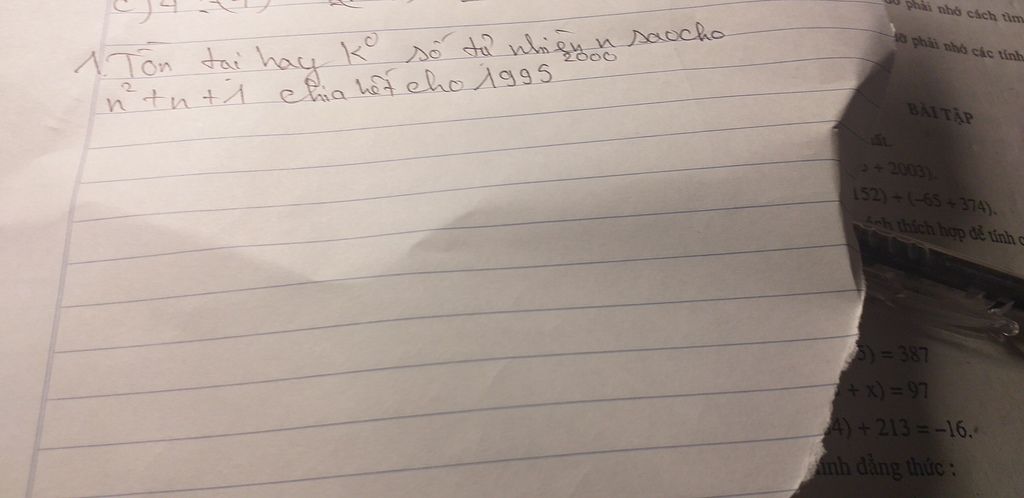 c) 4
phải nhớ cách tìm
1. Tồn tại hay k⁰ số tự nhiên n saocho
phải nhớ các tính
n² + n + 1 chia hết cho 1995²⁰⁰⁰
BÀI TẬP
+ 2003).
152) + (–65 + 374).
thích hợp để tính
5) = 387
+ x) = 97
4) + 213 = –16.
đẳng thức :